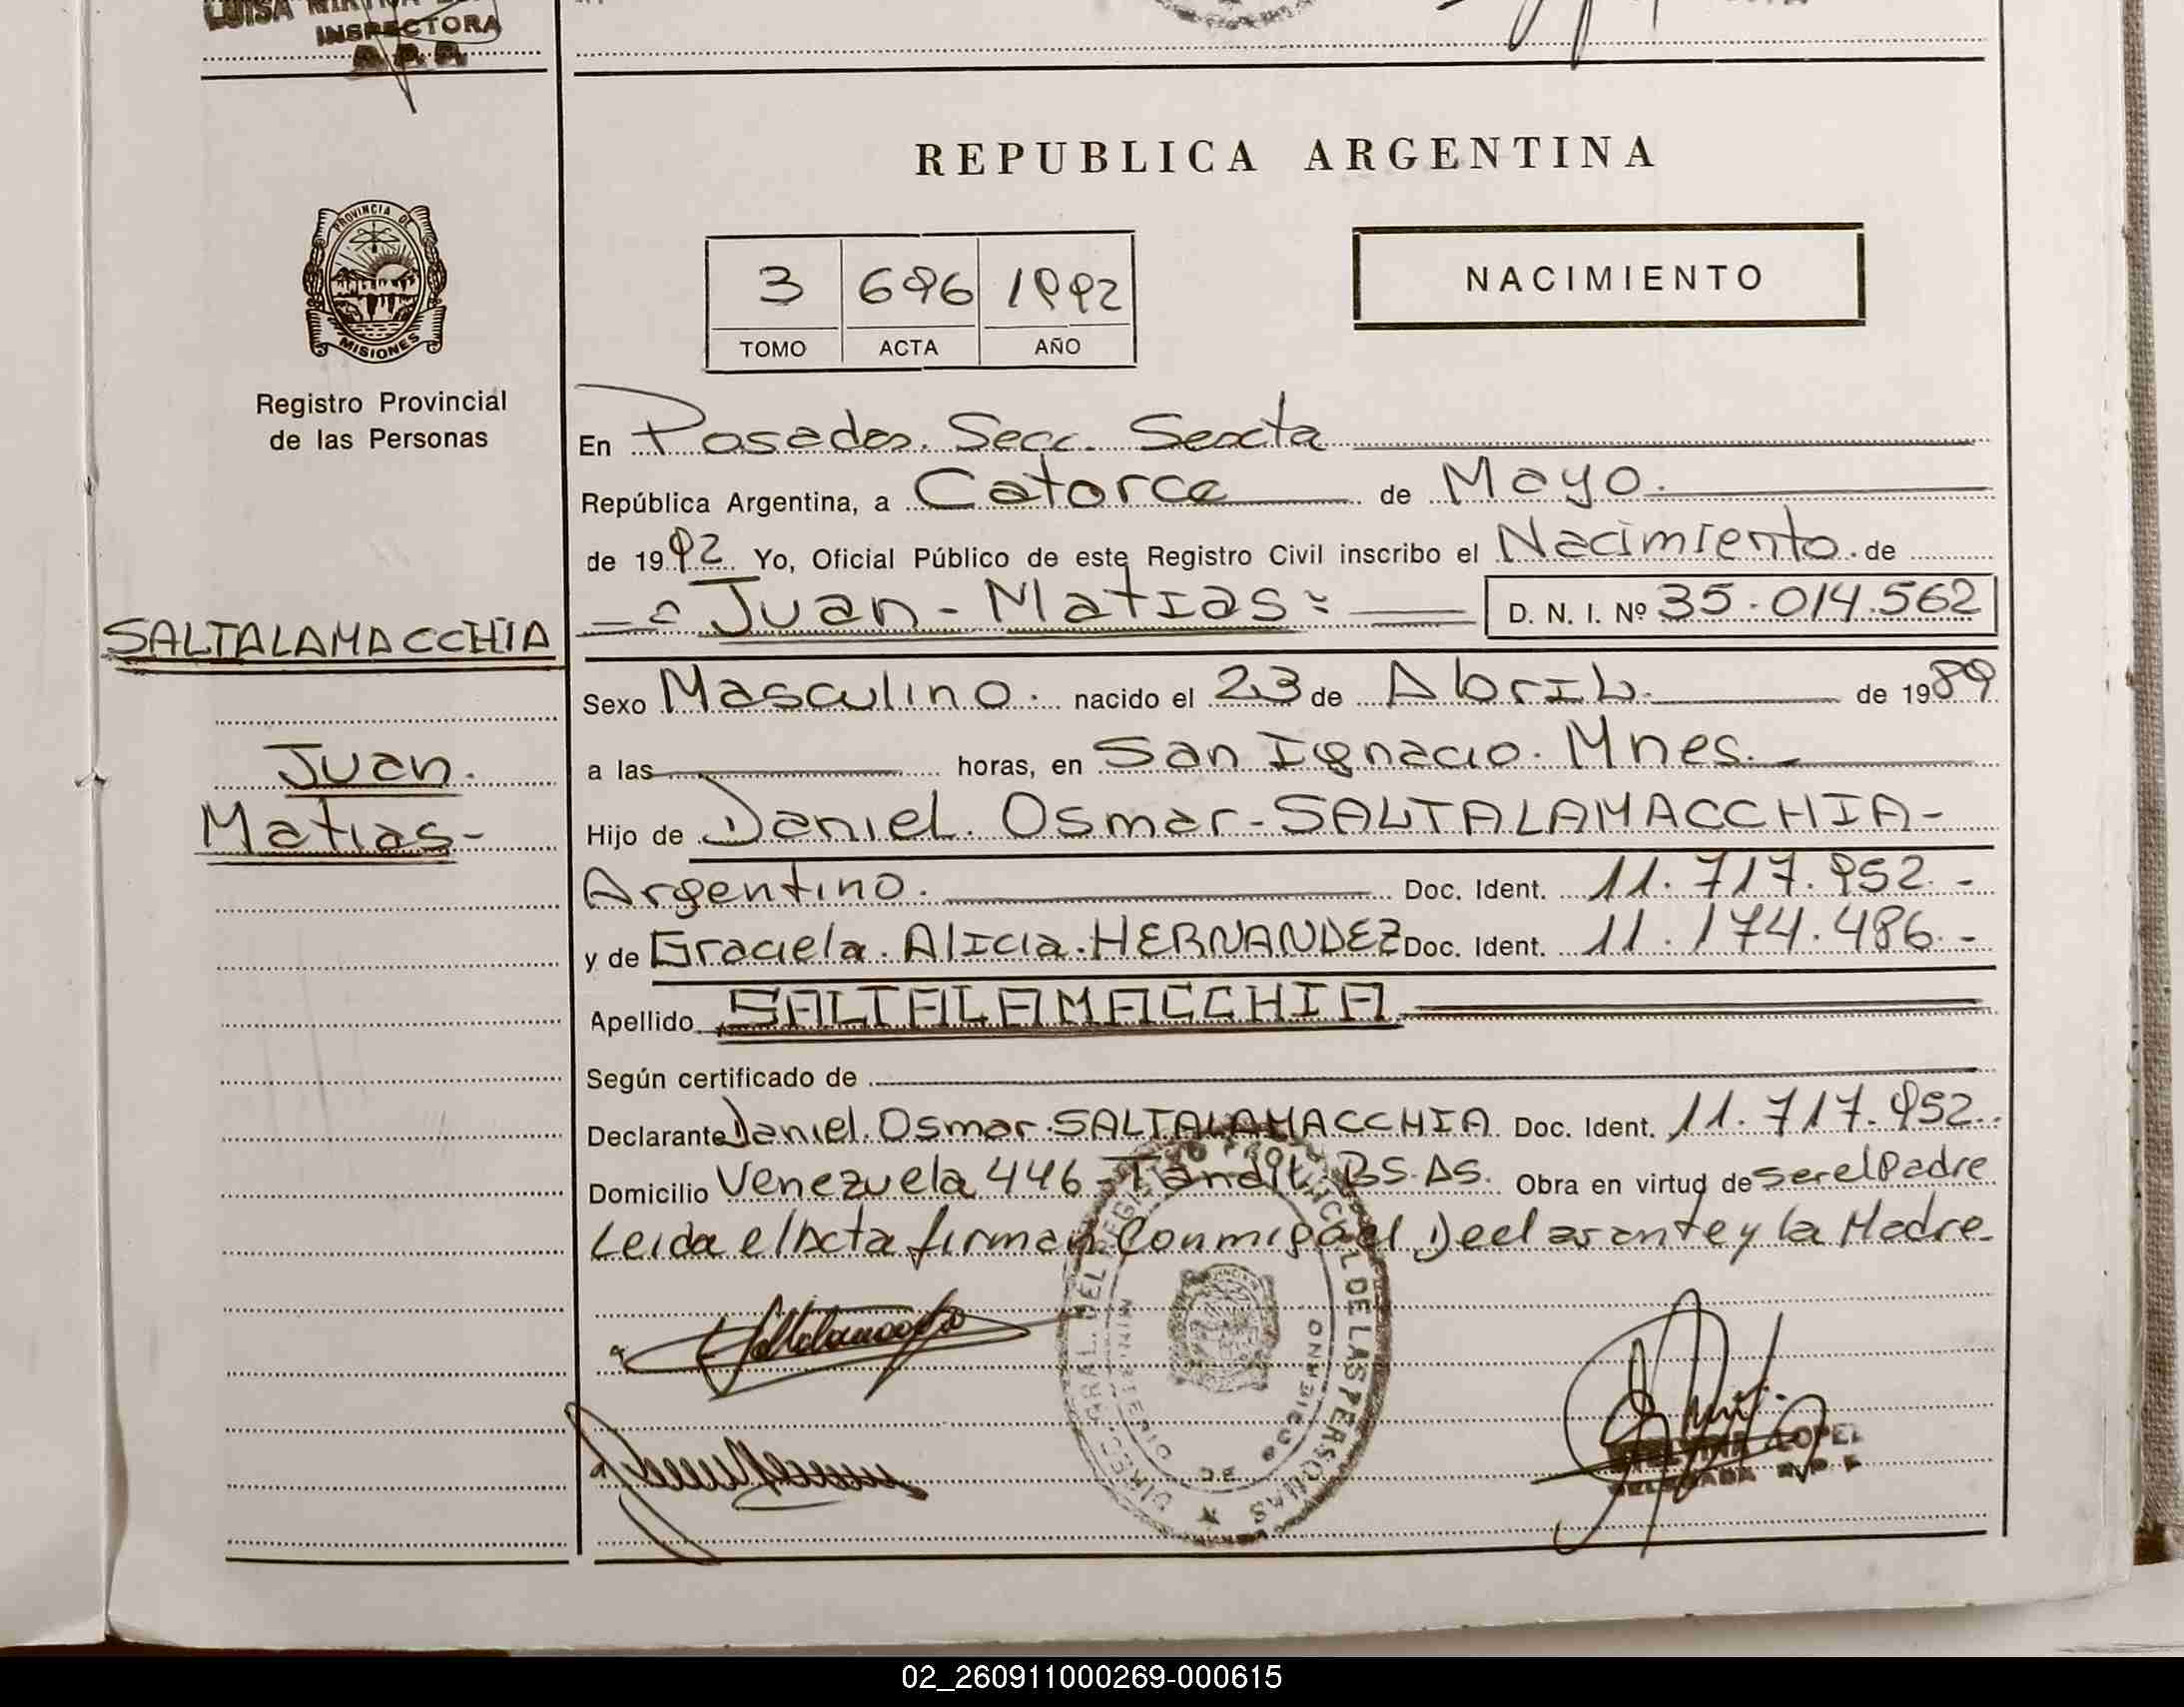 LUISA
INSPECTORA
REPUBLICA ARGENTINA
NACIMIENTO
3 696 1992
TOMO ACTA AÑO
PROVINCIA DE
MISIONES
Registro Provincial
de las Personas
En Posadas. Secc. Sexta
República Argentina, a Catorce de Mayo.
de 1992 Yo, Oficial Público de este Registro Civil inscribo el Nacimiento. de
= Juan - Matias = D. N. I. Nº 35.014.562
SALTALAMACCHIA
Juan.
Matias-
Sexo Masculino. nacido el 23 de Abril. de 1989
a las horas, en San Ignacio. Mnes.
Hijo de Daniel. Osmar-SALTALAMACCHIA-
Argentino. Doc. Ident. 11.717.952.-
y de Graciela. Alicia. HERNANDEZ Doc. Ident. 11.174.486.-
Apellido SALTALAMACCHIA
Según certificado de
Declarante Daniel. Osmar. SALTALAMACCHIA Doc. Ident. 11.717.952..
Domicilio Venezuela 446-Tandil. BS.AS. Obra en virtud de ser el Padre
Leida el Acta firman Conmigo el Declarante y la Madre.
DE LAS PERSONAS
MINISTERIO DE GOBIERNO
LOPEZ
02_260911000269-000615